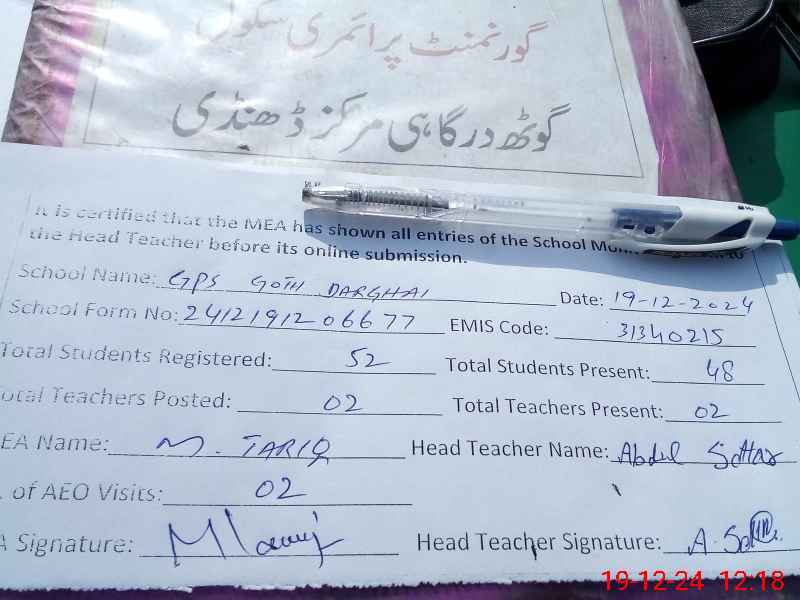 گورنمنٹ پرائمری سکول
گوٹھ درگاہی مرکز ڈھنڈی
It is certified that the MEA has shown all entries of the School
the Head Teacher before its online submission.
School Name: GPS GOTH DARGHAI Date: 19-12-2024
School Form No: 241219120 6677 EMIS Code: 31340215
Total Students Registered: 52 Total Students Present: 48
Total Teachers Posted: 02 Total Teachers Present: 02
EA Name: M. TARIQ Head Teacher Name: Abdul Sattar
. of AEO Visits: 02
A Signature: Head Teacher Signature: A. Sattar
19-12-24 12:18